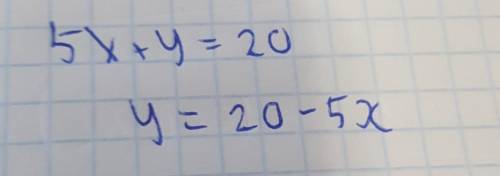 5x+y=20
y=20-5x